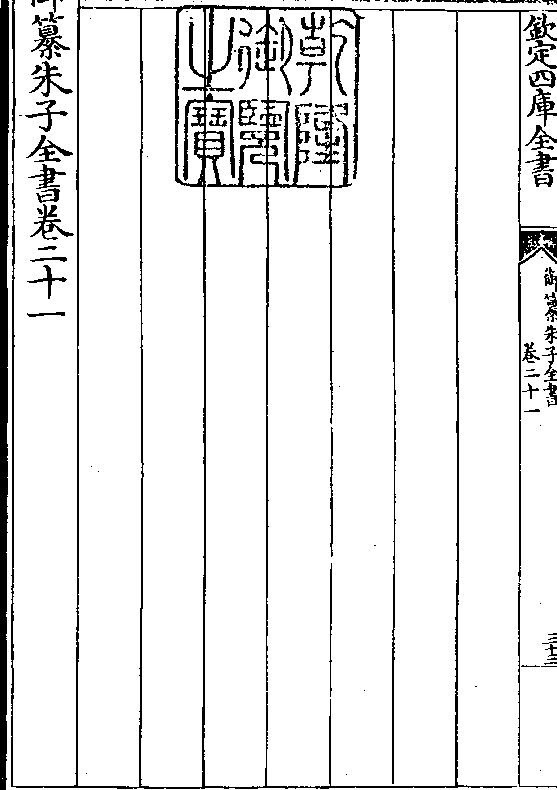 欽定四庫全書
御纂朱子全書
卷二十一
三十三
乾隆
御覽
之寶
御纂朱子全書卷二十一